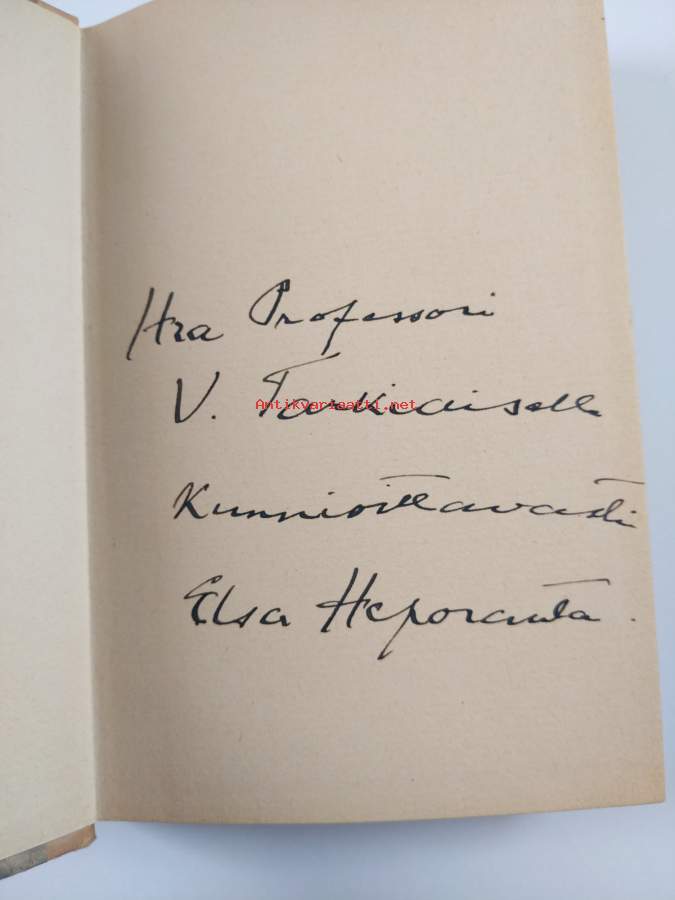 Hra Professori
V. Tarkiaiselle
Antikvariaatti.net
Kunnioittavasti
Elsa Heporauta.